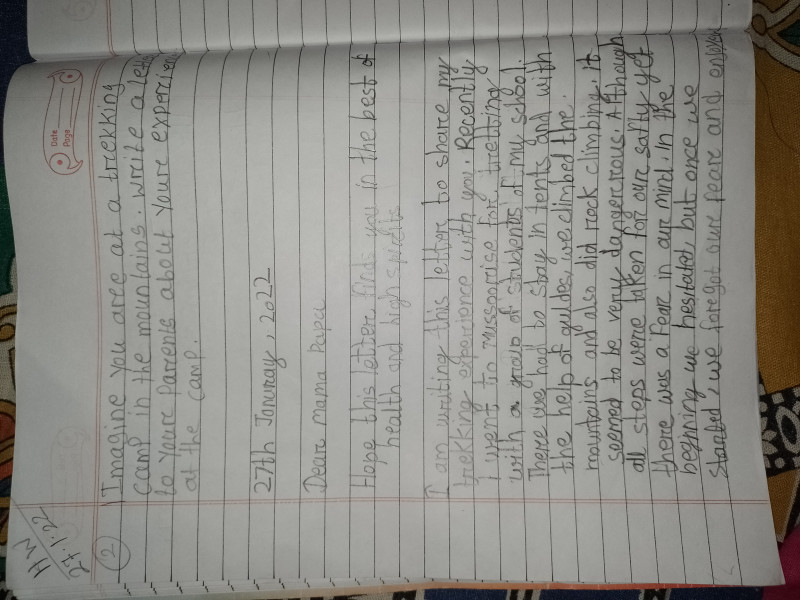 HW
27.1.22
Date
Page
2 Imagine you are at a trekking
camp in the mountains. Write a lette
to youre Parents about youre experien
at the camp.
27th Januray, 2022
Dear Mama Papa
Hope this letter finds you in the best of
health and high spirits
I am writing this letter to share my
trekking experience with you. Recently
I went to mussoorise for trettring
with a group of students of my shool.
There we had to stay in tents and with
the help of guides, we climbed the.
mountains and also did rock climbing. It
seemed to be very dangerous. Although
all steps were taken for our safty yet
there was a fear in our mind. In the
beginning we hesitated, but once we
started, we foregot our feare and enjoy